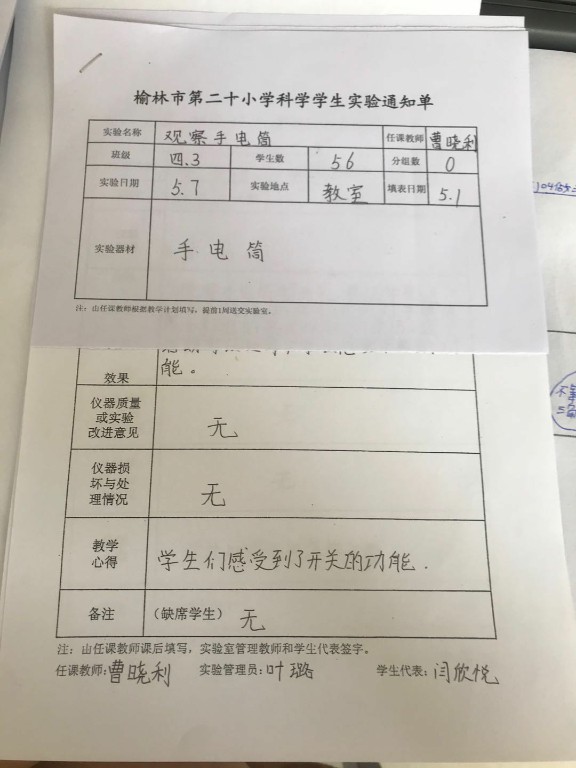 榆林市第二十小学科学学生实验通知单
实验名称 观察手电筒 任课教师 曹晓利
班级 四.3 学生数 56 分组数 0
实验日期 5.7 实验地点 教室 填表日期 5.1
实验器材 手电筒
注:由任课教师根据教学计划填写,提前1周送交实验室。
效果 能。
仪器质量
或实验
改进意见 无
仪器损
坏与处
理情况 无
教学
心得 学生们感受到了开关的功能.
备注 (缺席学生) 无
注:由任课教师课后填写,实验室管理教师和学生代表签字。
任课教师:曹晓利 实验管理员:叶璐 学生代表:闫欣悦